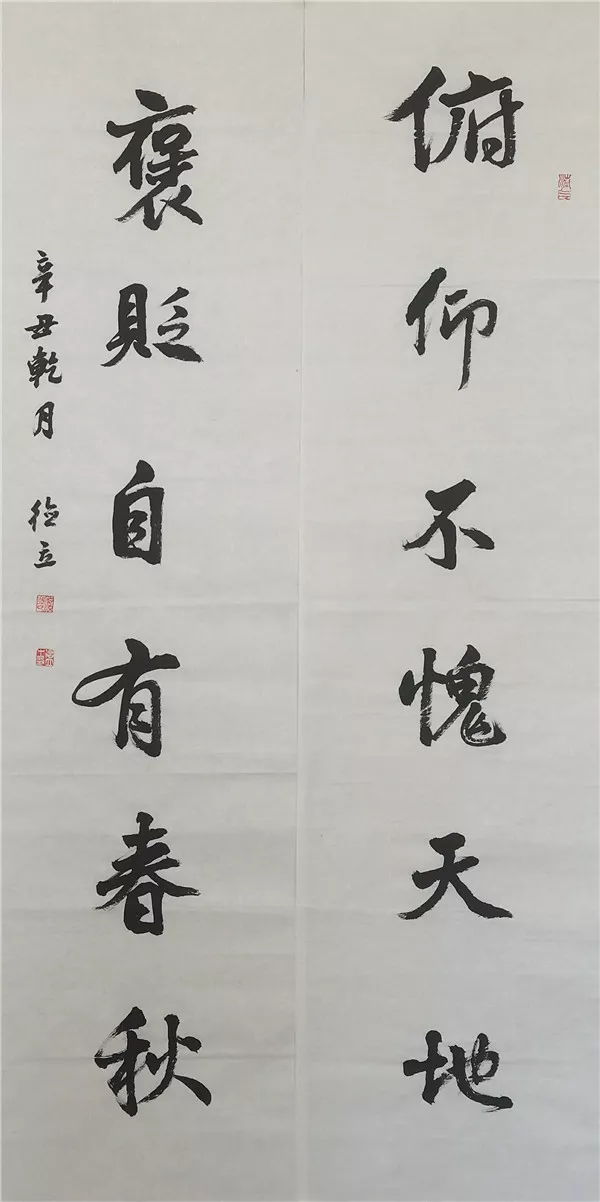 俯仰不愧天地
褒貶自有春秋
辛丑乾月 德立